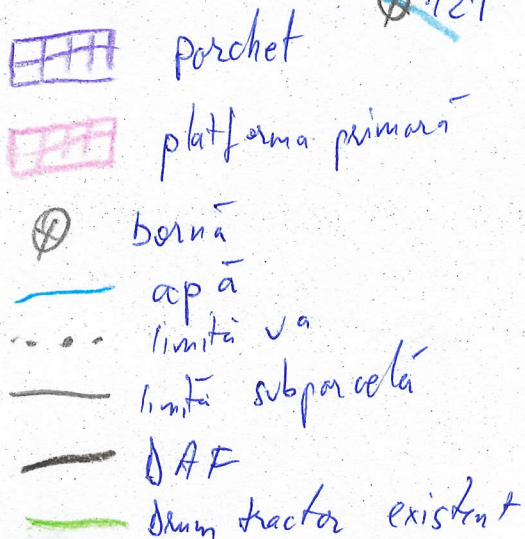 121
parchet
platforma primară
bornă
apă
limită ua
limită subparcelă
DAF
Drum tractor existent